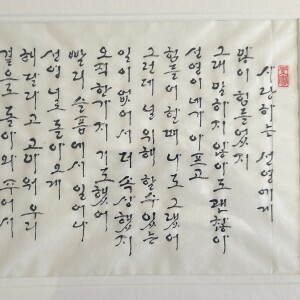 사랑하는 선영에게
많이 힘들었지
그래 말하지 않아도 괜찮아
선영이 네가 아프고
힘들어 할 때 나도 그랬어
그런데 널 위해 할 수 있는
일이 없어서 더 속상했지
오직 한 가지 기도했어
빨리 슬픔에서 일어나
선영 너로 돌아오게
해 달라고 고마워 우리
곁으로 돌아와 주어서